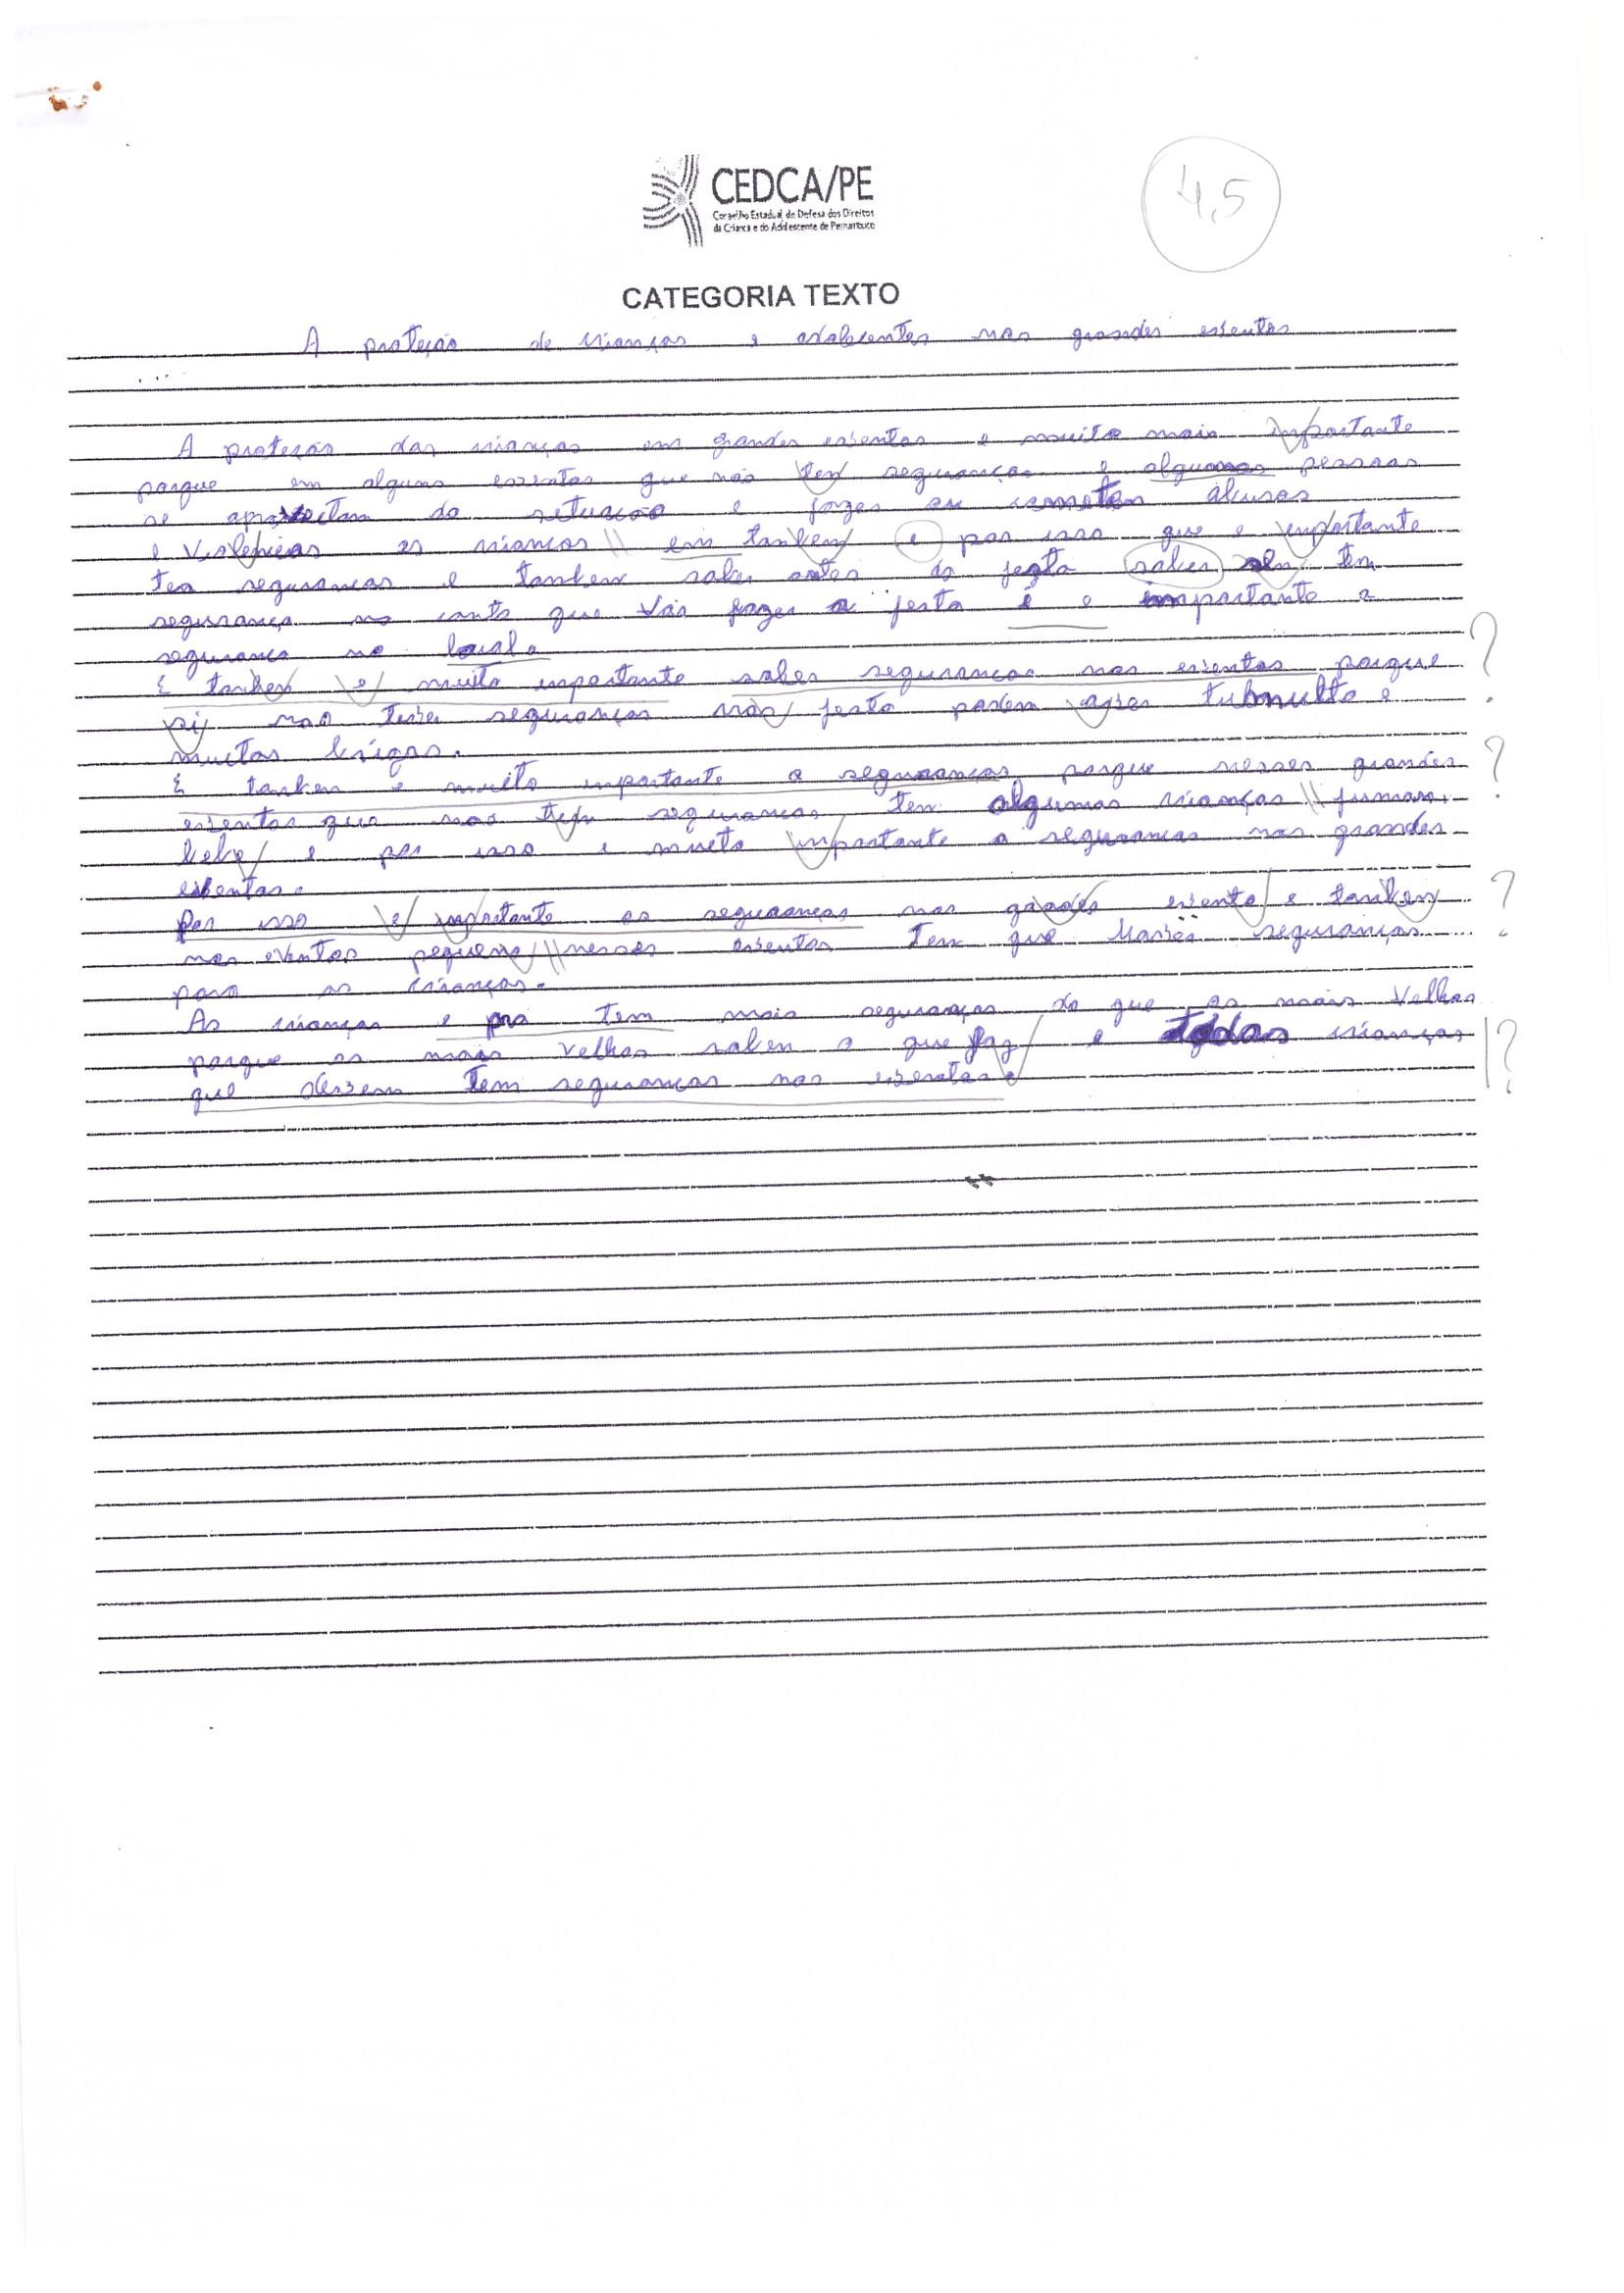 CEDCA/PE
Conselho Estadual de Defesa dos Direitos
da Criança e do Adolescente de Pernambuco
4,5
CATEGORIA TEXTO
A proteção de crianças e adolecentes nas grandes eventos
A proteção das crianças em grandes eventos e muito mais importante
porque em alguns eventos que não tem seguranças e algumas pessoas
se aproveitam da situação e fazer ou cometem abusos
e violências as crianças em tanbem e por isso que e importante
ter seguranças e tanbem saber antes da festa saber tem
segurança no canto que vai fazer a festa é e importante a
segurança no local.
E tanben e muito importante saber seguranças nos eventos porque
si nao tiver seguranças nas festa podem aver tubmulto e
muitas brigas.
E tanben e muito importante a seguranças porque nesses grandes
eventos que nao tem seguranças tem algumas crianças fumaro,
bebe e por isso e muito importante a seguranças nos grandes
eventos.
Por isso e importante as seguranças nos grades evento e tanben
nos eventos pequeno nesses eventos tem que haver seguranças
para as crianças.
As crianças e pra tem mais seguranças do que os mais velhos
porque os mais velhos saben o que faz e todas crianças
que devem tem seguranças nos eventos.
?
?
?
?